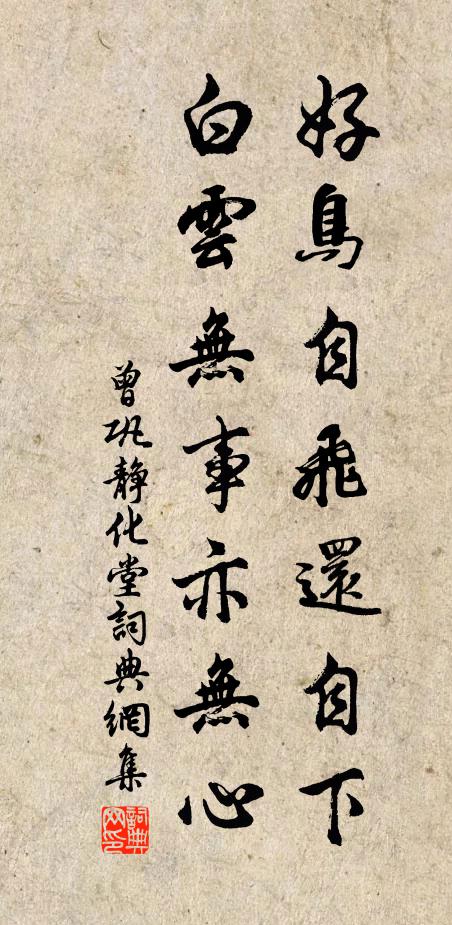 好鳥自飛還自下
白雲無事亦無心
曾巩靜化堂詞典網集
詞典网印